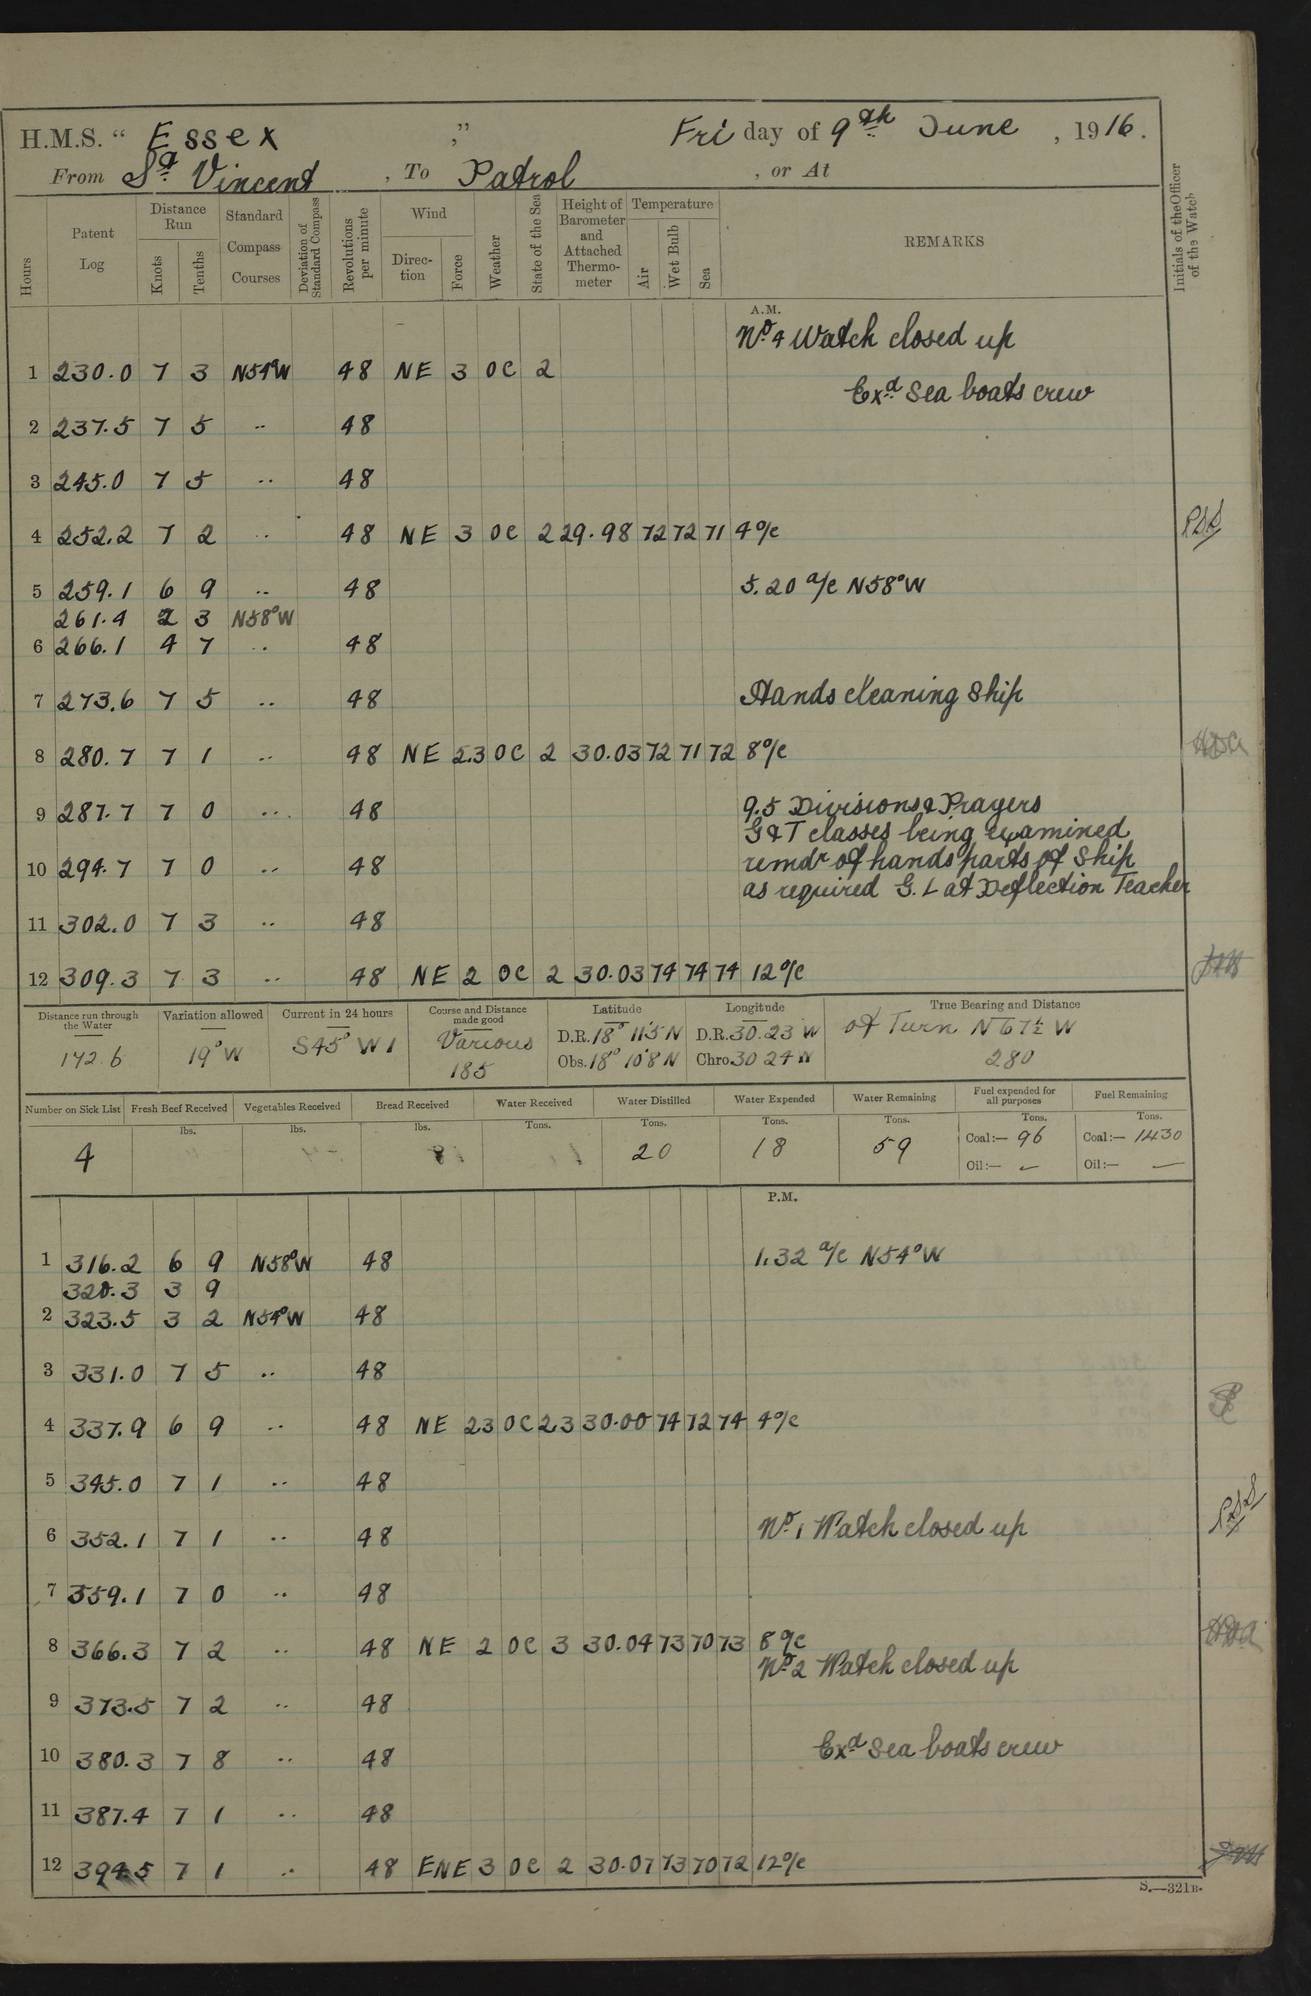 H.M.S. " Essex " Friday of 9th June, 1916.
From St. Vincent, To Patrol, or At
Hours Patent Log Distance Run Knots Tenths Standard Compass Courses Deviation of Standard Compass Revolutions per minute Wind Direction Force Weather State of the Sea Height of Barometer and Attached Thermometer Temperature Air Wet Bulb Sea REMARKS Initials of the Officer of the Watch
A.M.
No. 4 Watch closed up
1 230.0 7 3 N54°W 48 NE 3 OC 2
Exd Sea boats crew
2 237.5 7 5 .. 48
3 245.0 7 5 .. 48
4 252.2 7 2 .. 48 NE 3 OC 2 29.98 72 72 71 4 o/c PSS
5 259.1 6 9 .. 48 5.20 a/c N58°W
261.4 2 3 N58°W
6 266.1 4 7 .. 48
7 273.6 7 5 .. 48 Hands cleaning Ship
8 280.7 7 1 .. 48 NE 2.3 OC 2 30.03 72 71 72 8 o/c
9 287.7 7 0 .. 48 9.5 Divisions & Prayers
G & T classes being examined
10 294.7 7 0 .. 48 remdr of hands parts of Ship
as required G. L at Deflection Teacher
11 302.0 7 3 .. 48
12 309.3 7 3 .. 48 NE 2 OC 2 30.03 74 74 74 12 o/c
Distance run through the Water Variation allowed Current in 24 hours Course and Distance made good Latitude Longitude True Bearing and Distance
172.6 19°W S45°W 1 Various 185 D.R. 18° 11.5 N D.R. 30.23 W of Turn N67½W
Obs. 18° 10.8 N Chro. 30 24 W 280
Number on Sick List Fresh Beef Received Vegetables Received Bread Received Water Received Water Distilled Water Expended Water Remaining Fuel expended for all purposes Fuel Remaining
lbs. lbs. lbs. Tons. Tons. Tons. Tons. Tons. Tons.
4 20 18 59 Coal:— 96 Coal:— 1430
Oil:— — Oil:— —
P.M.
1 316.2 6 9 N58°W 48 1.32 a/c N54°W
320.3 3 9
2 323.5 3 2 N54°W 48
3 331.0 7 5 .. 48
4 337.9 6 9 .. 48 NE 23 OC 23 30.00 74 72 74 4 o/c
5 345.0 7 1 .. 48
6 352.1 7 1 .. 48 No. 1 Watch closed up PSS
7 359.1 7 0 .. 48
8 366.3 7 2 .. 48 NE 2 OC 3 30.04 73 70 73 8 o/c
No. 2 Watch closed up
9 373.5 7 2 .. 48
10 380.3 7 8 .. 48 Exd Sea boats crew
11 387.4 7 1 .. 48
12 394.5 7 1 .. 48 ENE 3 OC 2 30.07 73 70 72 12 o/c
S.—321B.